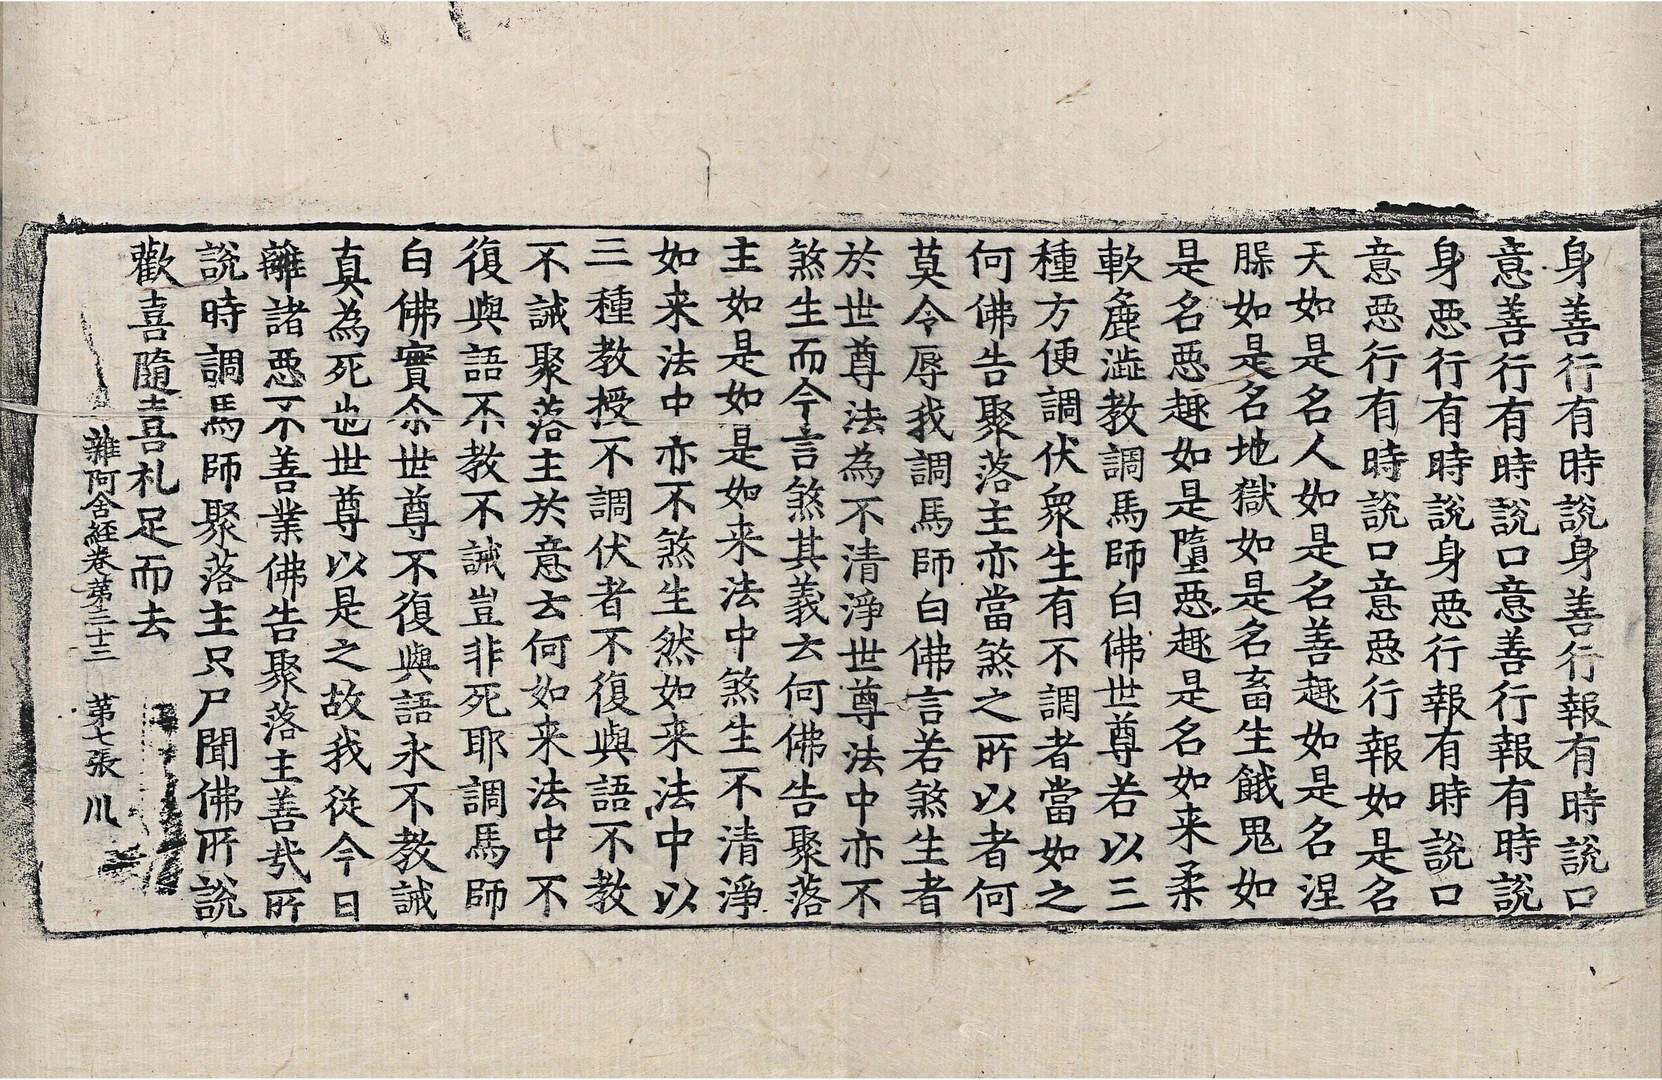 身善行有時說身善行報有時說口
意善行有時說口意善行報有時說
身悪行有時說身悪行報有時說口
意悪行有時說口意悪行報如是名
天如是名人如是名善趣如是名涅
槃如是名地獄如是名畜生餓鬼如
是名悪趣如是墮悪趣是名如来柔
軟麁澁教調馬師白佛世尊若以三
種方便調伏衆生有不調者當如之
何佛告聚落主亦當煞之所以者何
莫令辱我調馬師白佛言若煞生者
於世尊法為不清淨世尊法中亦不
煞生而今言煞其義云何佛告聚落
主如是如是如来法中煞生不清淨
如来法中亦不煞生然如来法中以
三種教授不調伏者不復與語不教
不誡聚落主於意云何如来法中不
復與語不教不誡豈非死耶調馬師
白佛實尒世尊不復與語永不教誡
真為死也世尊以是之故我從今日
離諸悪不善業佛告聚落主善哉所
說時調馬師聚落主只尸聞佛所說
歡喜隨喜礼足而去
雜阿含經卷第三十三 第七張 川